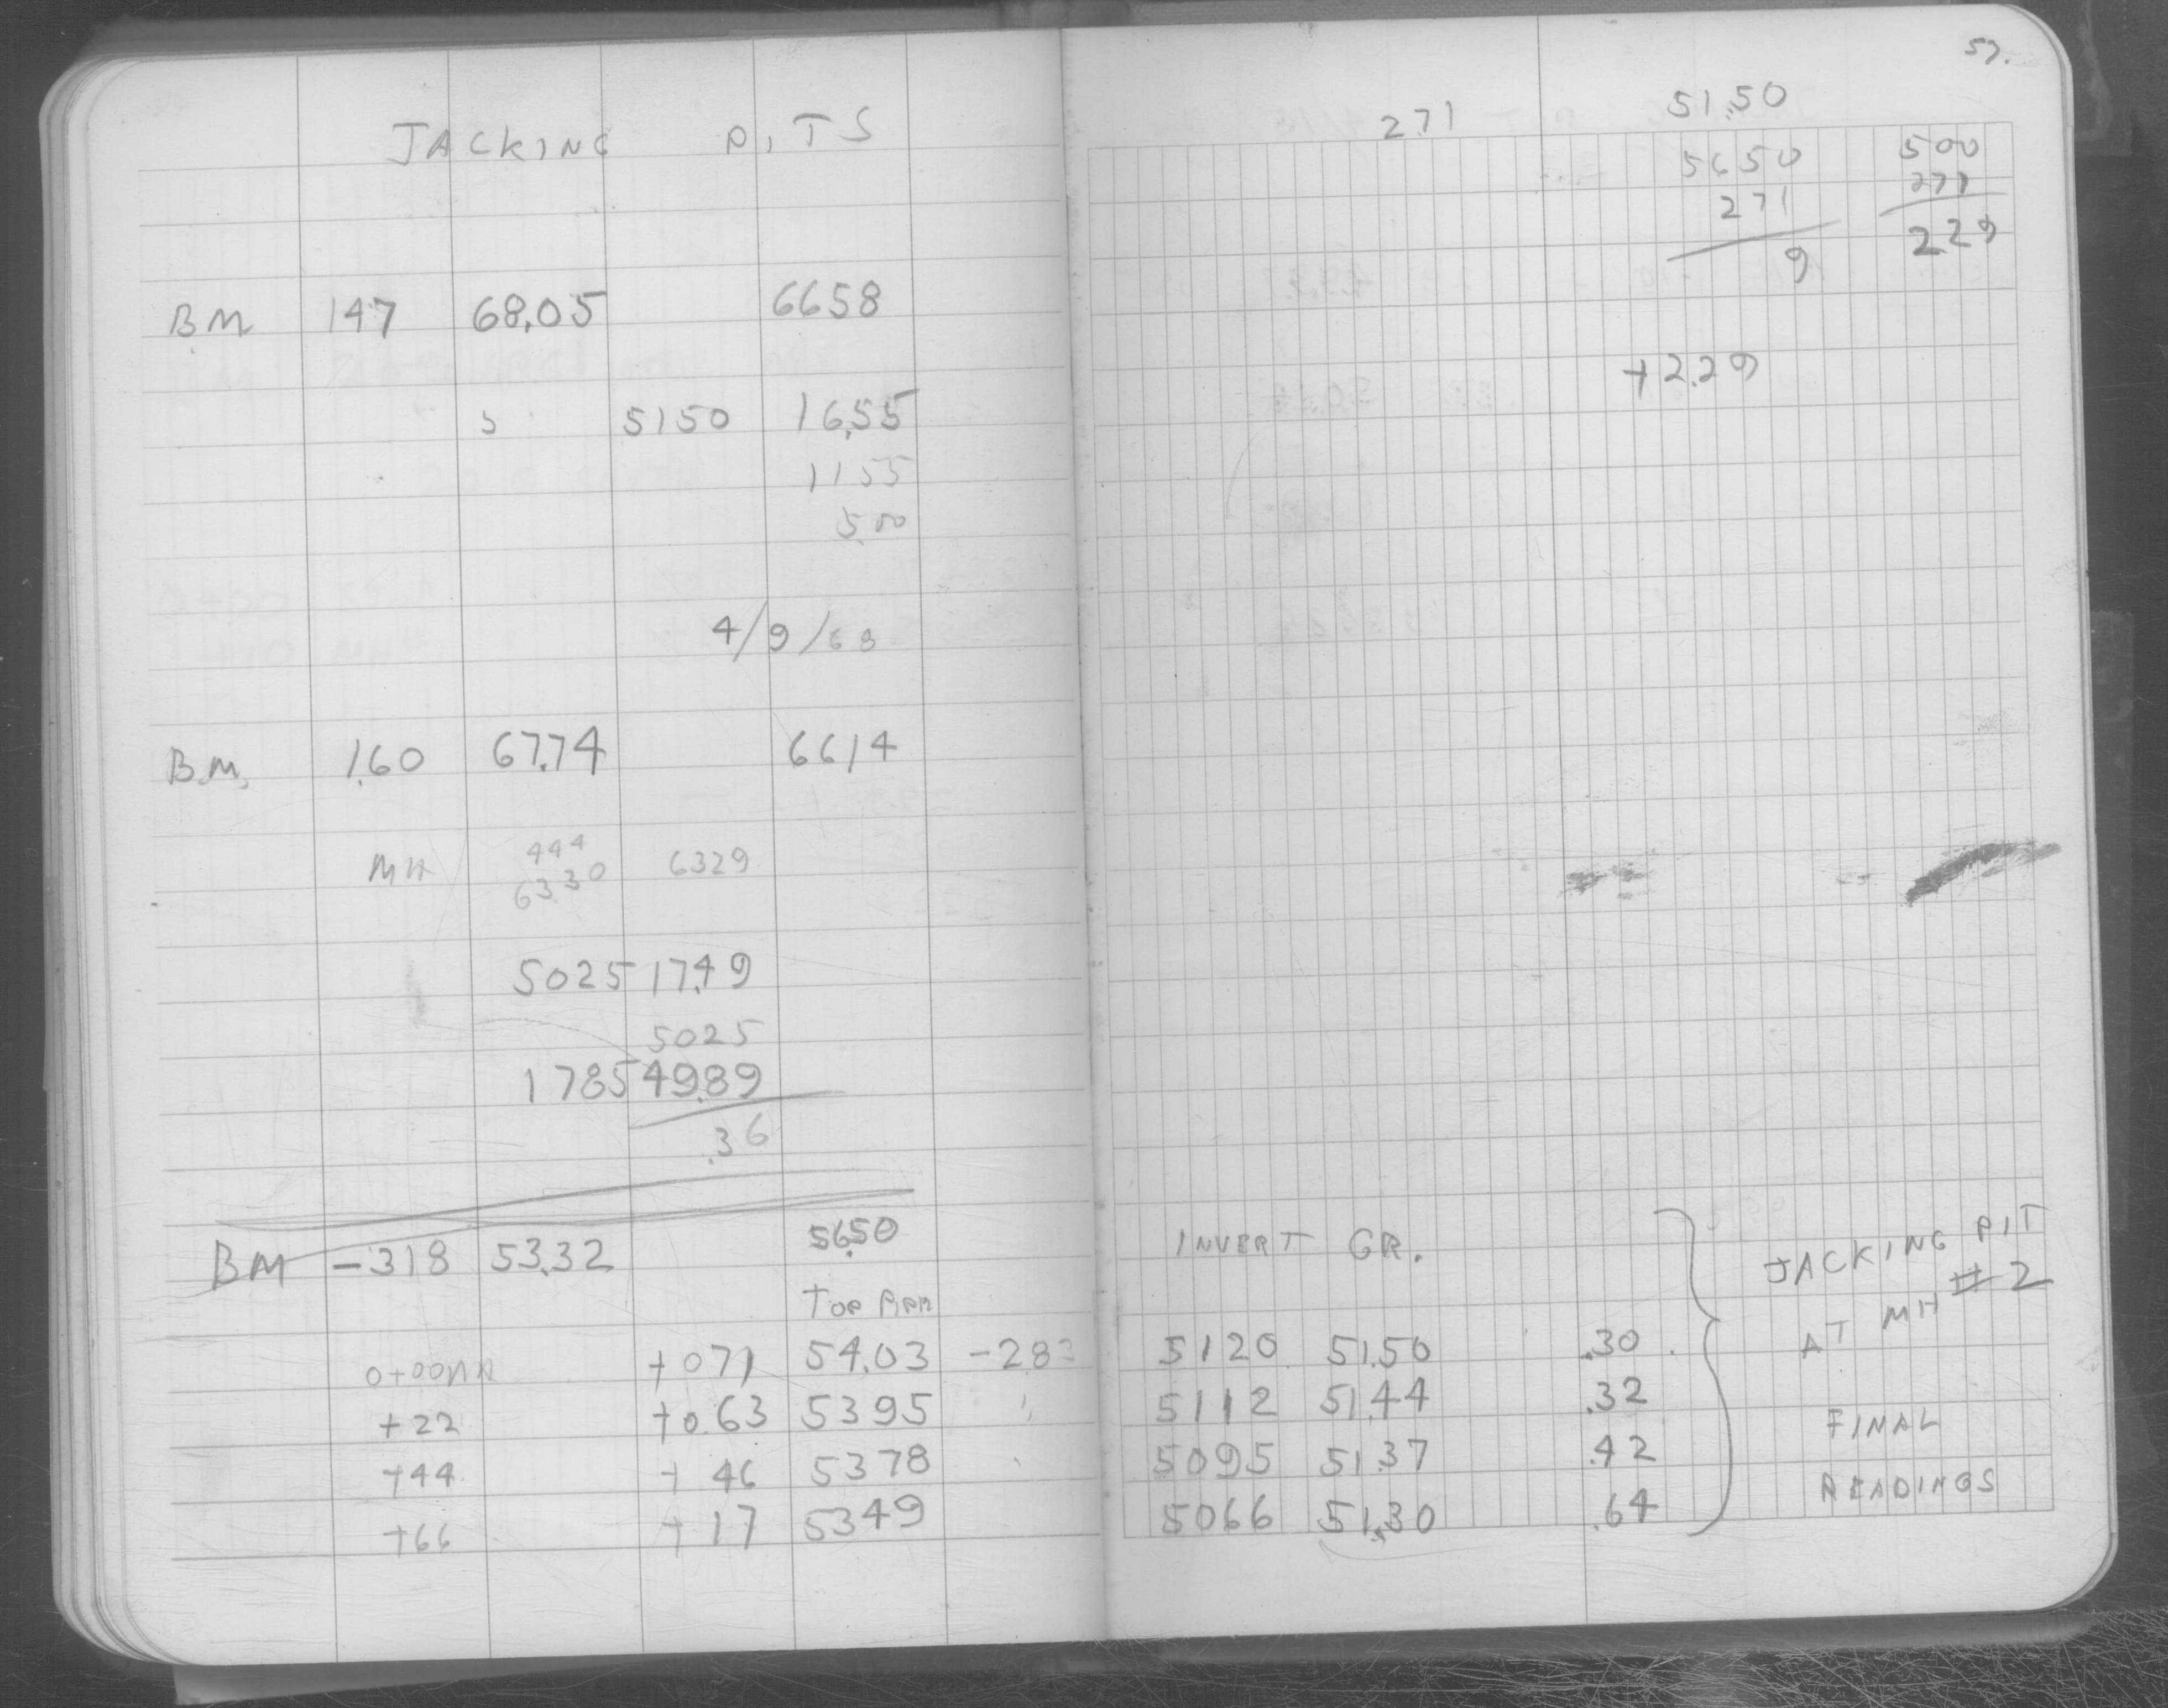 JACKING PITS
BM 147 68.05 6658
5 5150 16.55
1155
5.00
4/9/68
B.M. 1.60 67.74 6614
MH 444 6329
63.30
5025 17.49
5025
1785 49.89
.36
BM -318 53.32 56.50
TOP
0+00 +071 54.03 -283
+22 +0.63 5395
+44 + 46 5378
+66 + 17 5349
57.
271 51.50
5650 500
271 271
9 229
+2.29
INVERT GR.
5120 51.50 .30
5112 51.44 .32
5095 51.37 .42
5066 51.30 .64
JACKING PIT
AT MH #2
FINAL
READINGS